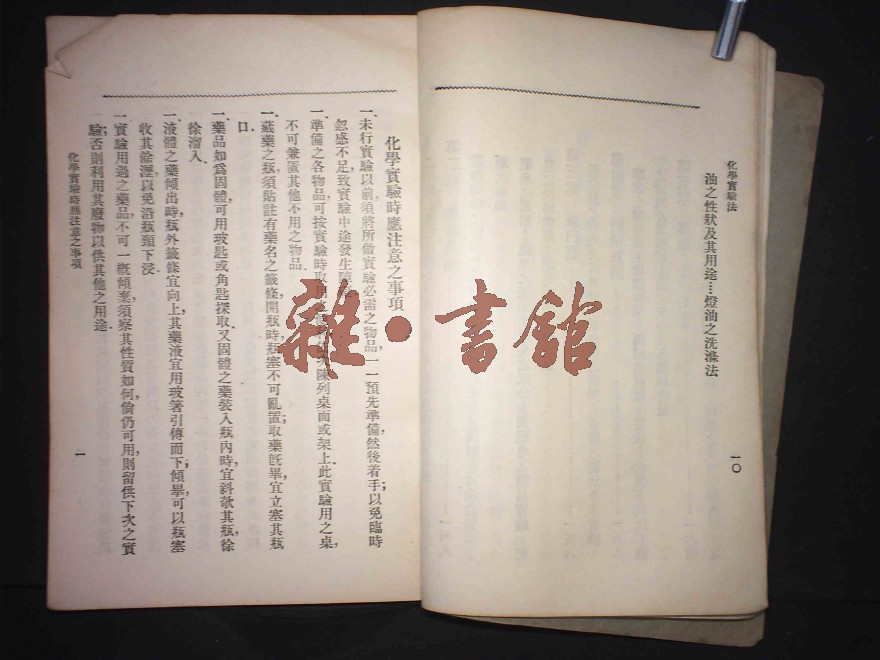 化學實驗法
油之性狀及其用途…燈油之洗滌法
一〇
化學實驗時應注意之事項
一、未行實驗以前須將所做實驗必需之物品，一一預先準備，然後着手；以免臨時
忽感不足致實驗中途發生
一、準備之各物品，可按實驗時取用 陳列桌面或架上，此實驗用之桌，
不可兼置其他不用之物品。
一、藏藥之瓶，須貼註有藥名之籤條，開瓶時瓶塞不可亂置；取藥既畢，宜立塞其瓶
口。
一、藥品如爲固體，可用玻匙或角匙採取。又固體之藥裝入瓶內時，宜斜欹其瓶，徐
徐溜入。
一、液體之藥傾出時，瓶外籤條宜向上，其藥液宜用玻箸引傳而下；傾畢，可以瓶塞
收其餘瀝，以免沿瓶頸下浸。
一、實驗用過之藥品，不可一概傾棄，須察其性質如何，倘仍可用，則留供下次之實
驗；否則利用其廢物以供其他之用途。
化學實驗時應注意之事項
一
雜·書館